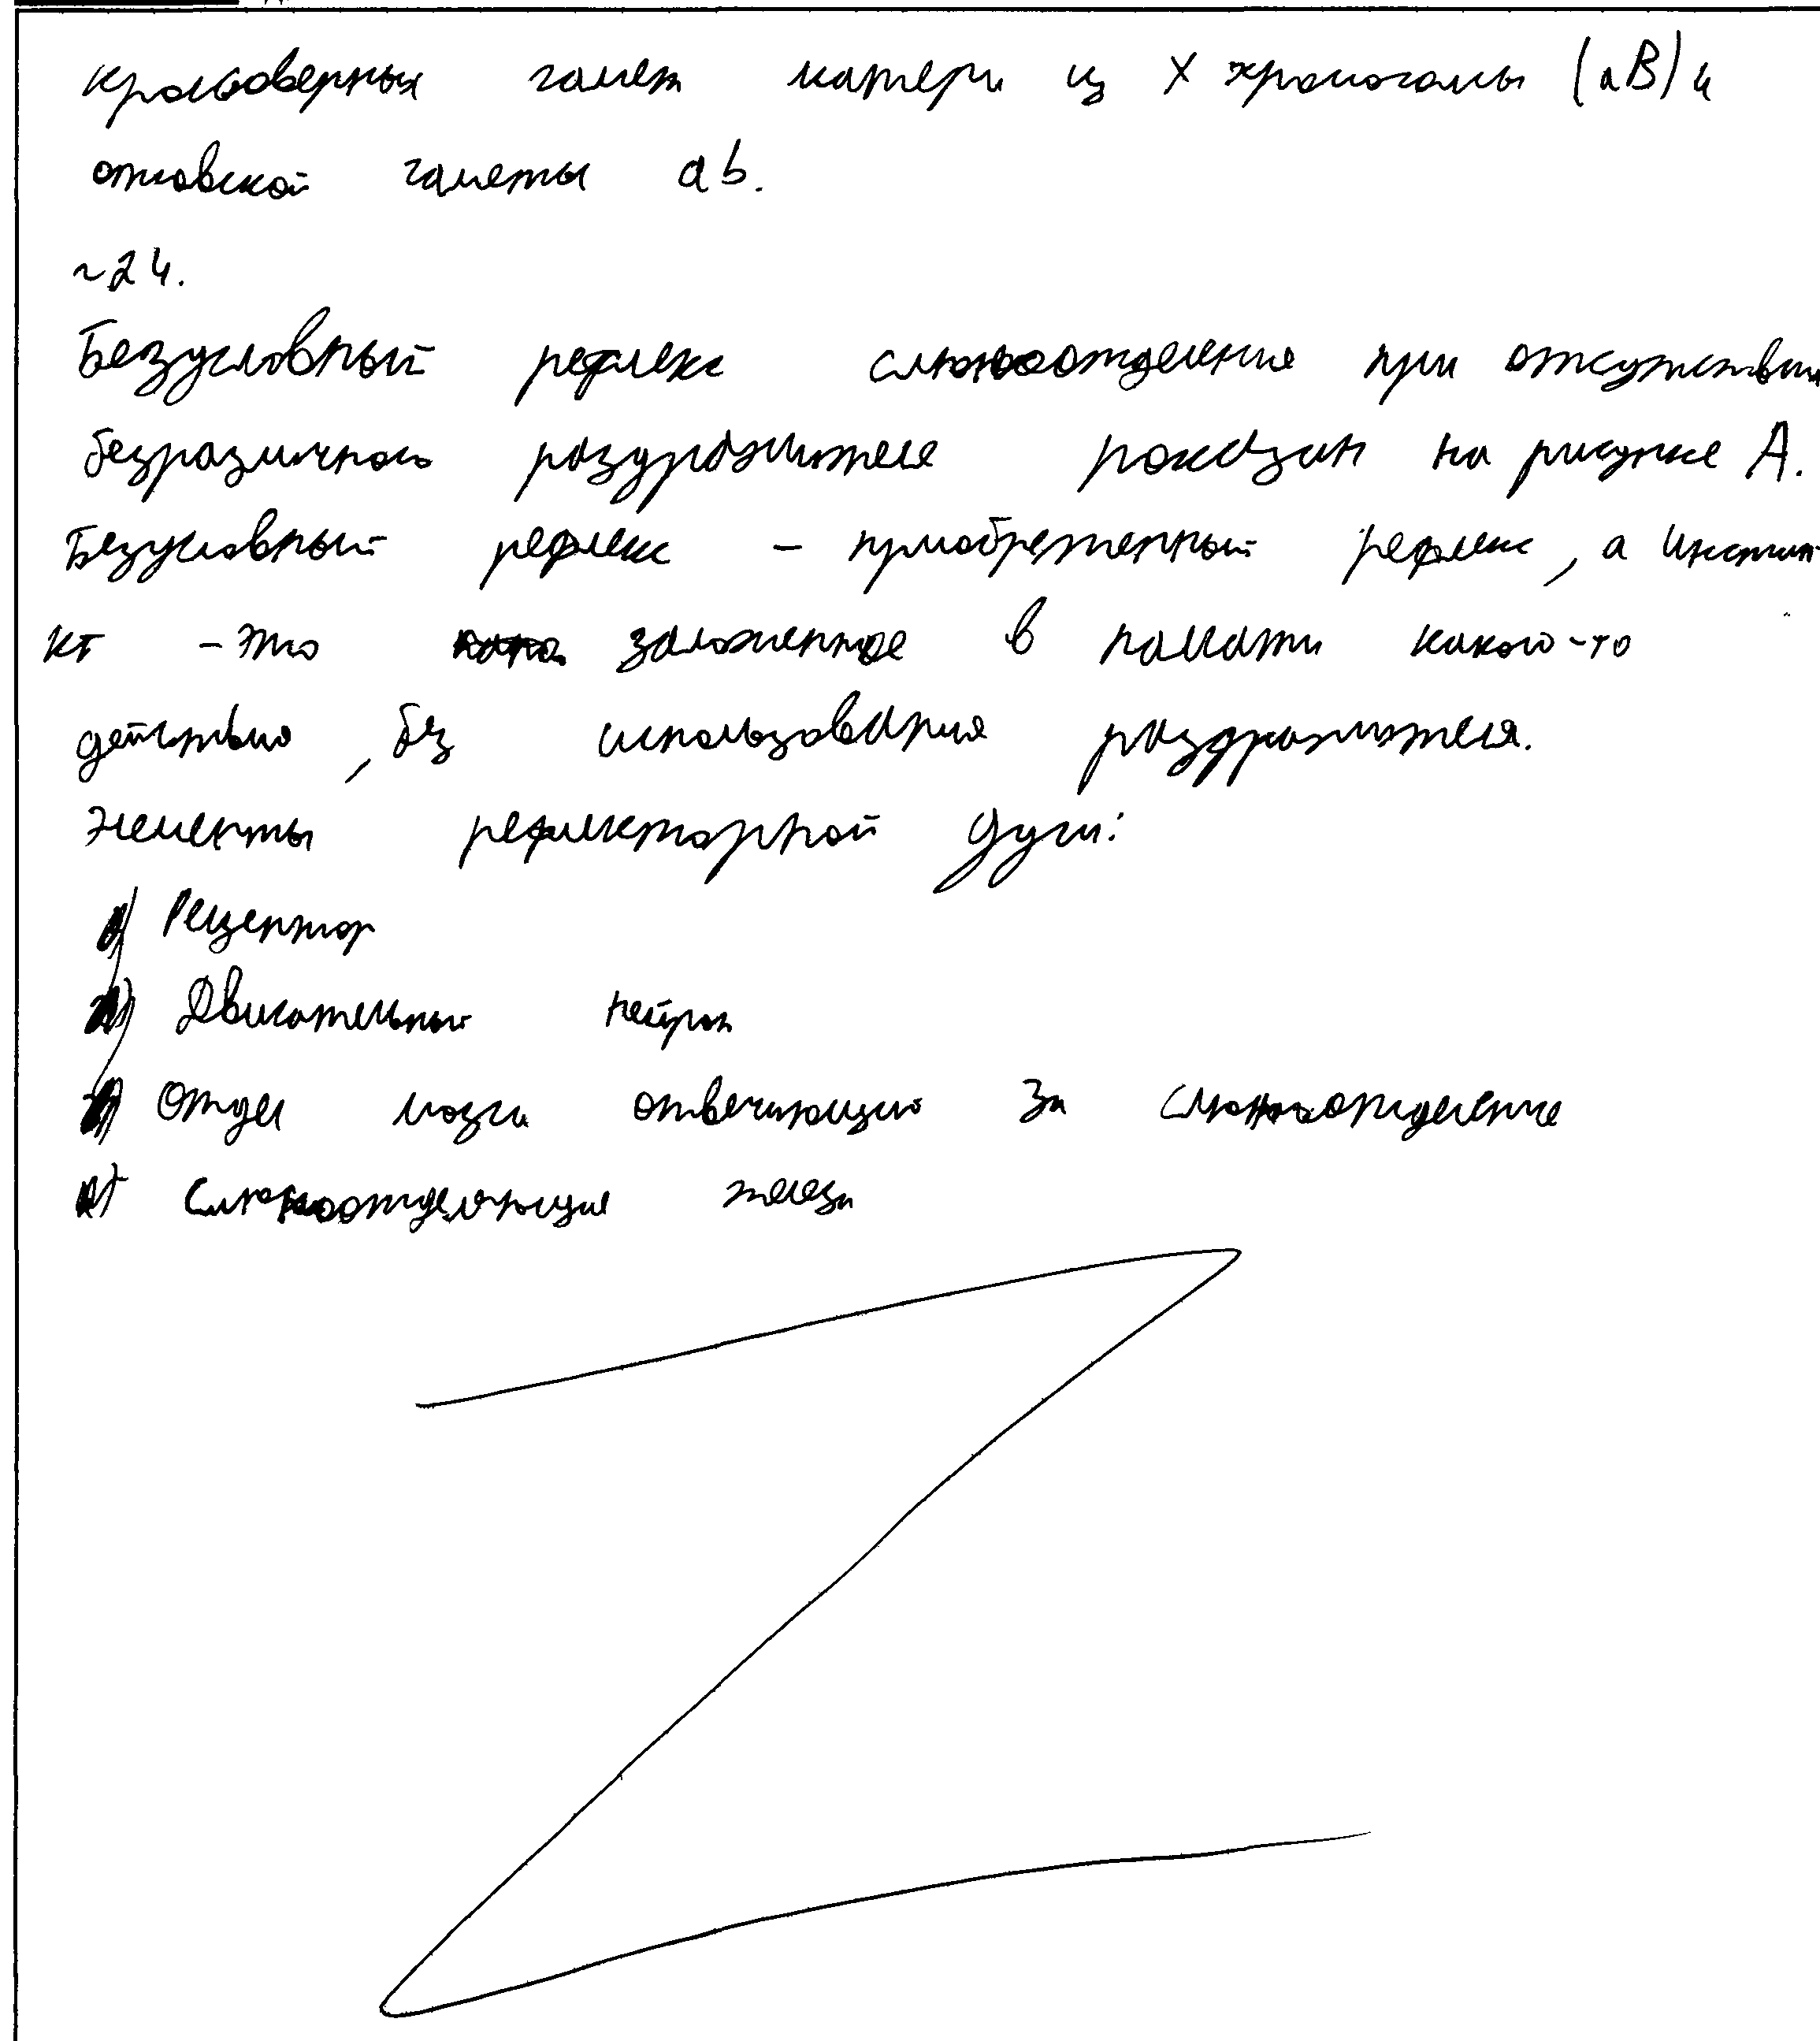 кроссоверных гамет матери из X хромосомы (aB) и
отцовской гаметы ab.
~24.
Безусловный рефлекс слюноотделения при отсутствии
безразличного раздражителя показан на рисунке А.
Безусловный рефлекс - приобретенный рефлекс, а инстин
кт - это заложенное в памяти какого-то
действию, без использования раздражителя.
Элементы рефлекторной дуги:
Рецептор
Двигательный нейрон
Отдел мозга отвечающий за слюноотделение
Слюноотделяющие железы